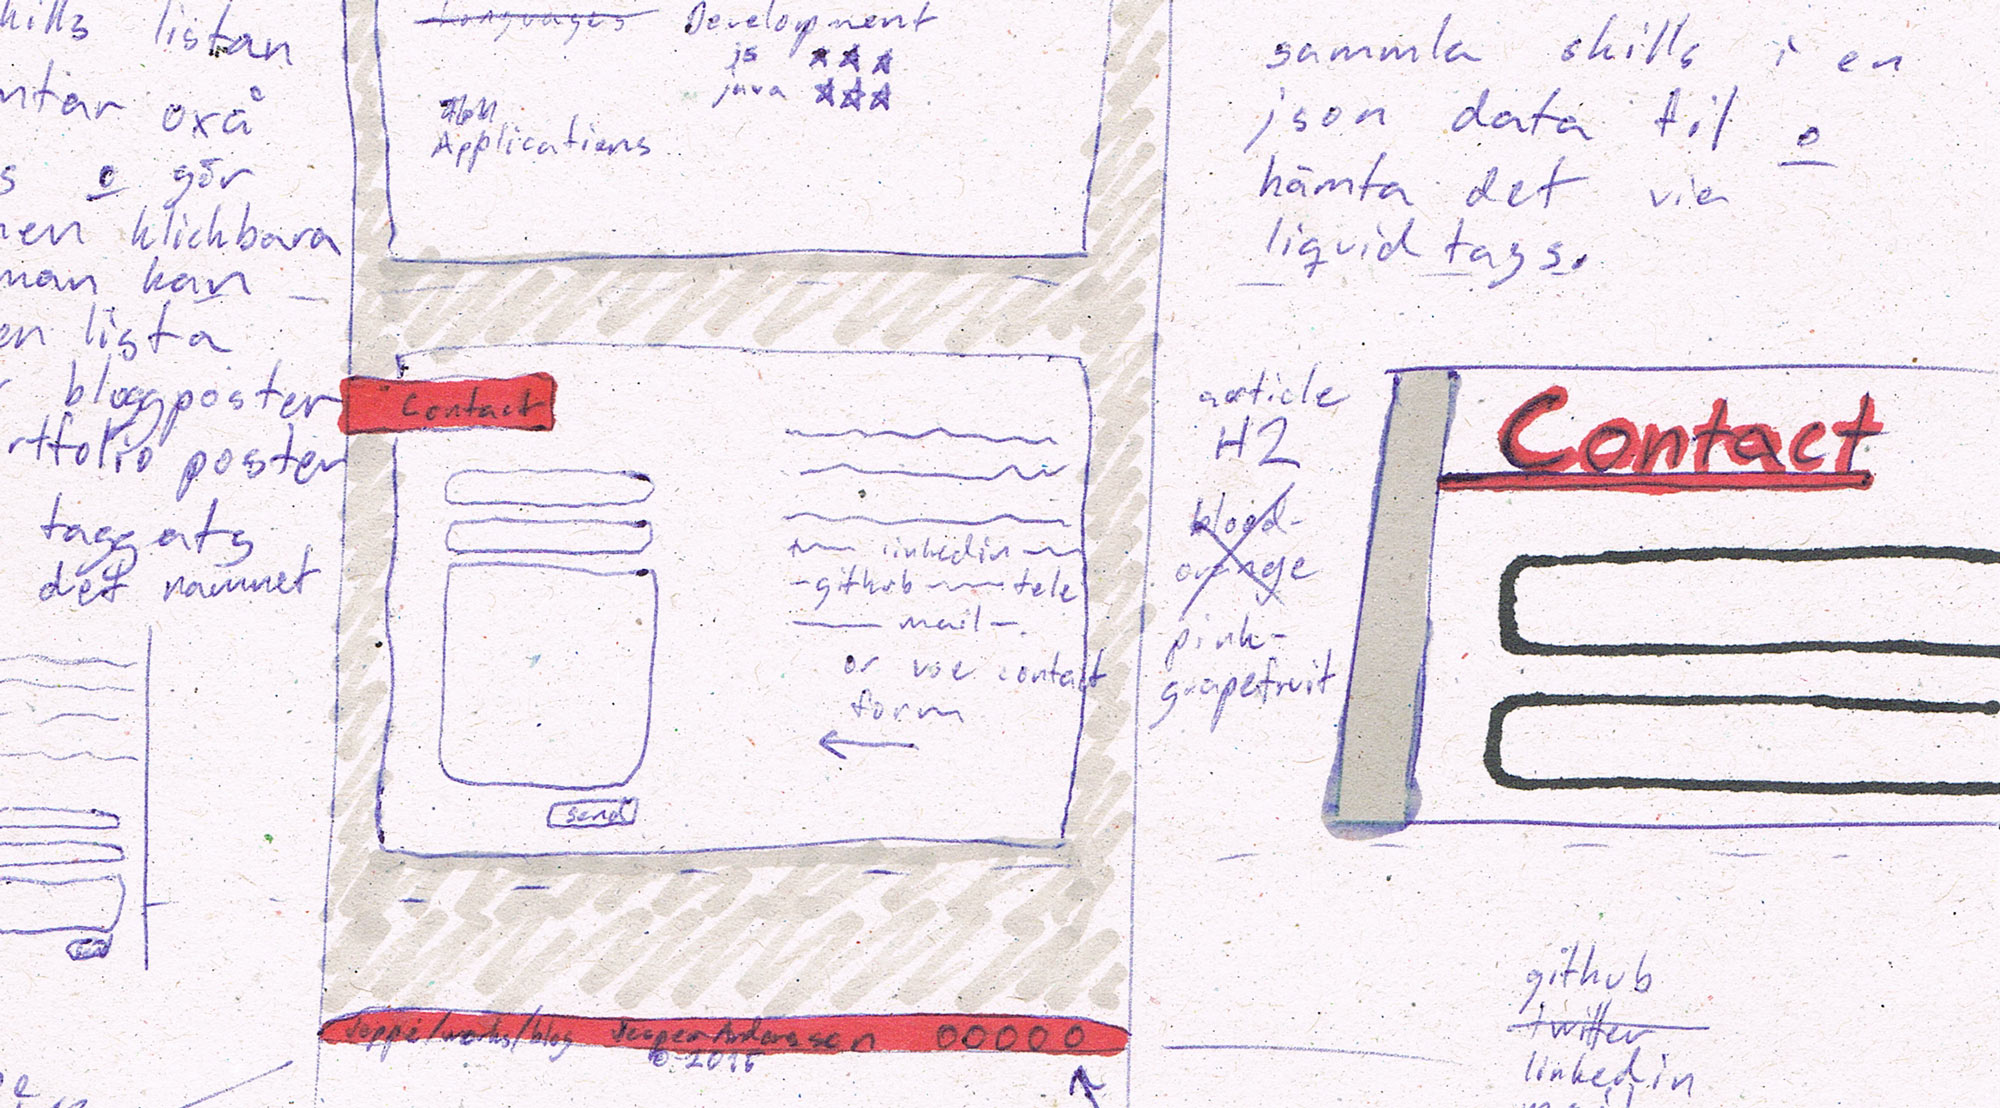 skills listan
oxå
o gör
klickbara
man kan
en lista
bloggposter
rtfolio poster
taggats
det namnet
Languages
Development
js ★★★
java ★★★
Applications
Contact
linkedin
github tele
mail
or use contact
form
send
Jeppe/works/blog Jesper Andersson
© 2015
sammla skills i en
json data fil o
hämta det via
liquid tags.
article
H2
blood-
orange
pink-
grapefruit
Contact
github
twitter
linkedin